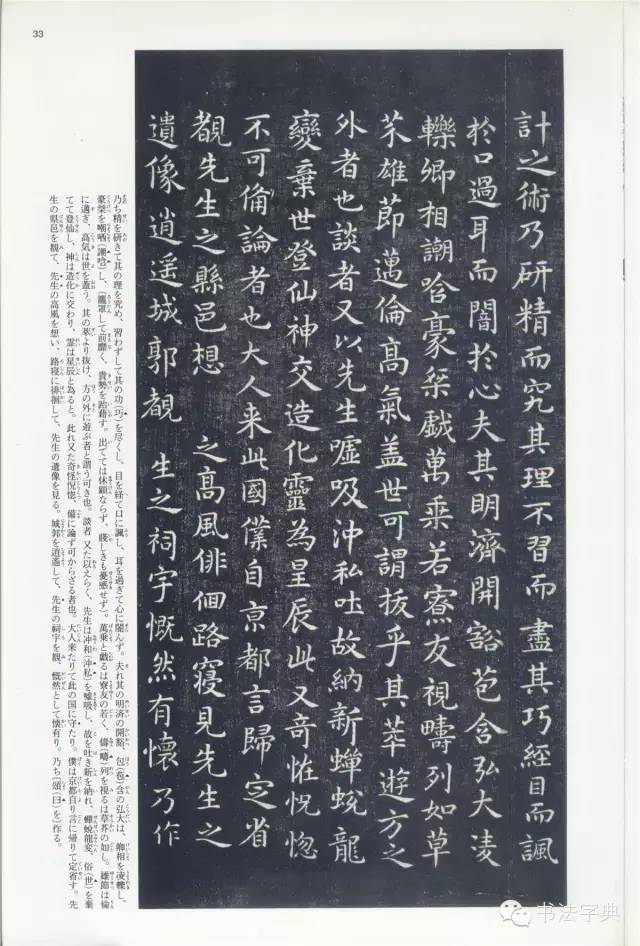 33
計之術乃研精而究其理不習而盡其巧經目而諷
於口過耳而闇於心夫其明濟開豁苞含弘大淩
轢卿相謿哈豪桀戱萬乗若寮友視疇列如草
芥雄節邁倫髙氣盖世可謂拔乎其萃遊方之
外者也談者又以先生嘘吸沖私吐故納新蟬蛻龍
變棄世登仙神交造化靈為星辰此又奇恠怳惚
不可俻論者也大人来此國僕自京都言歸定省
覩先生之縣邑想 之髙風俳佪路寝見先生之
遺像逍遥城郭覩 生之祠宇慨然有懷乃作
乃ち精を研きて其の理を究め、習わずして其の功〔巧〕を尽くし、目を経て口に諷し、耳を過ぎて心に闇んず。夫れ其の明済の開豁、包〔苞〕含の弘大は、卿相を凌轢し、
豪桀を嘲哂〔謿哈〕し、〔籠罩して前靡く、貴勢を跆藉す。出でては休顕ならず、賤しきも憂慼せず〕。萬乗と戯るは寮友の若く、儔〔疇〕列を視るは草芥の如し。雄節は倫
に邁ぎ、高気は世を蓋う。其の萃より抜け、方の外に遊ぶ者と謂う可き也。談者又た以えらく、先生は沖和〔沖私〕を嘘吸し、故を吐き新を納れ、蟬蛻龍変、俗〔世〕を棄
てて登仙し、神は造化に交わり、霊は星辰と為ると。此れ又た奇怪怳惚、備に論ず可からざる者也。大人来たりて此の国に守たり。僕は京都自り言に帰りて定省す。先
生の県邑を観て、先生の高風を想い、路寝に徘徊して、先生の遺像を見る。城郭を逍遥して、先生の祠宇を観、慨然として懐有り。乃ち〔頌〔曰〕を〕作る。
书法字典